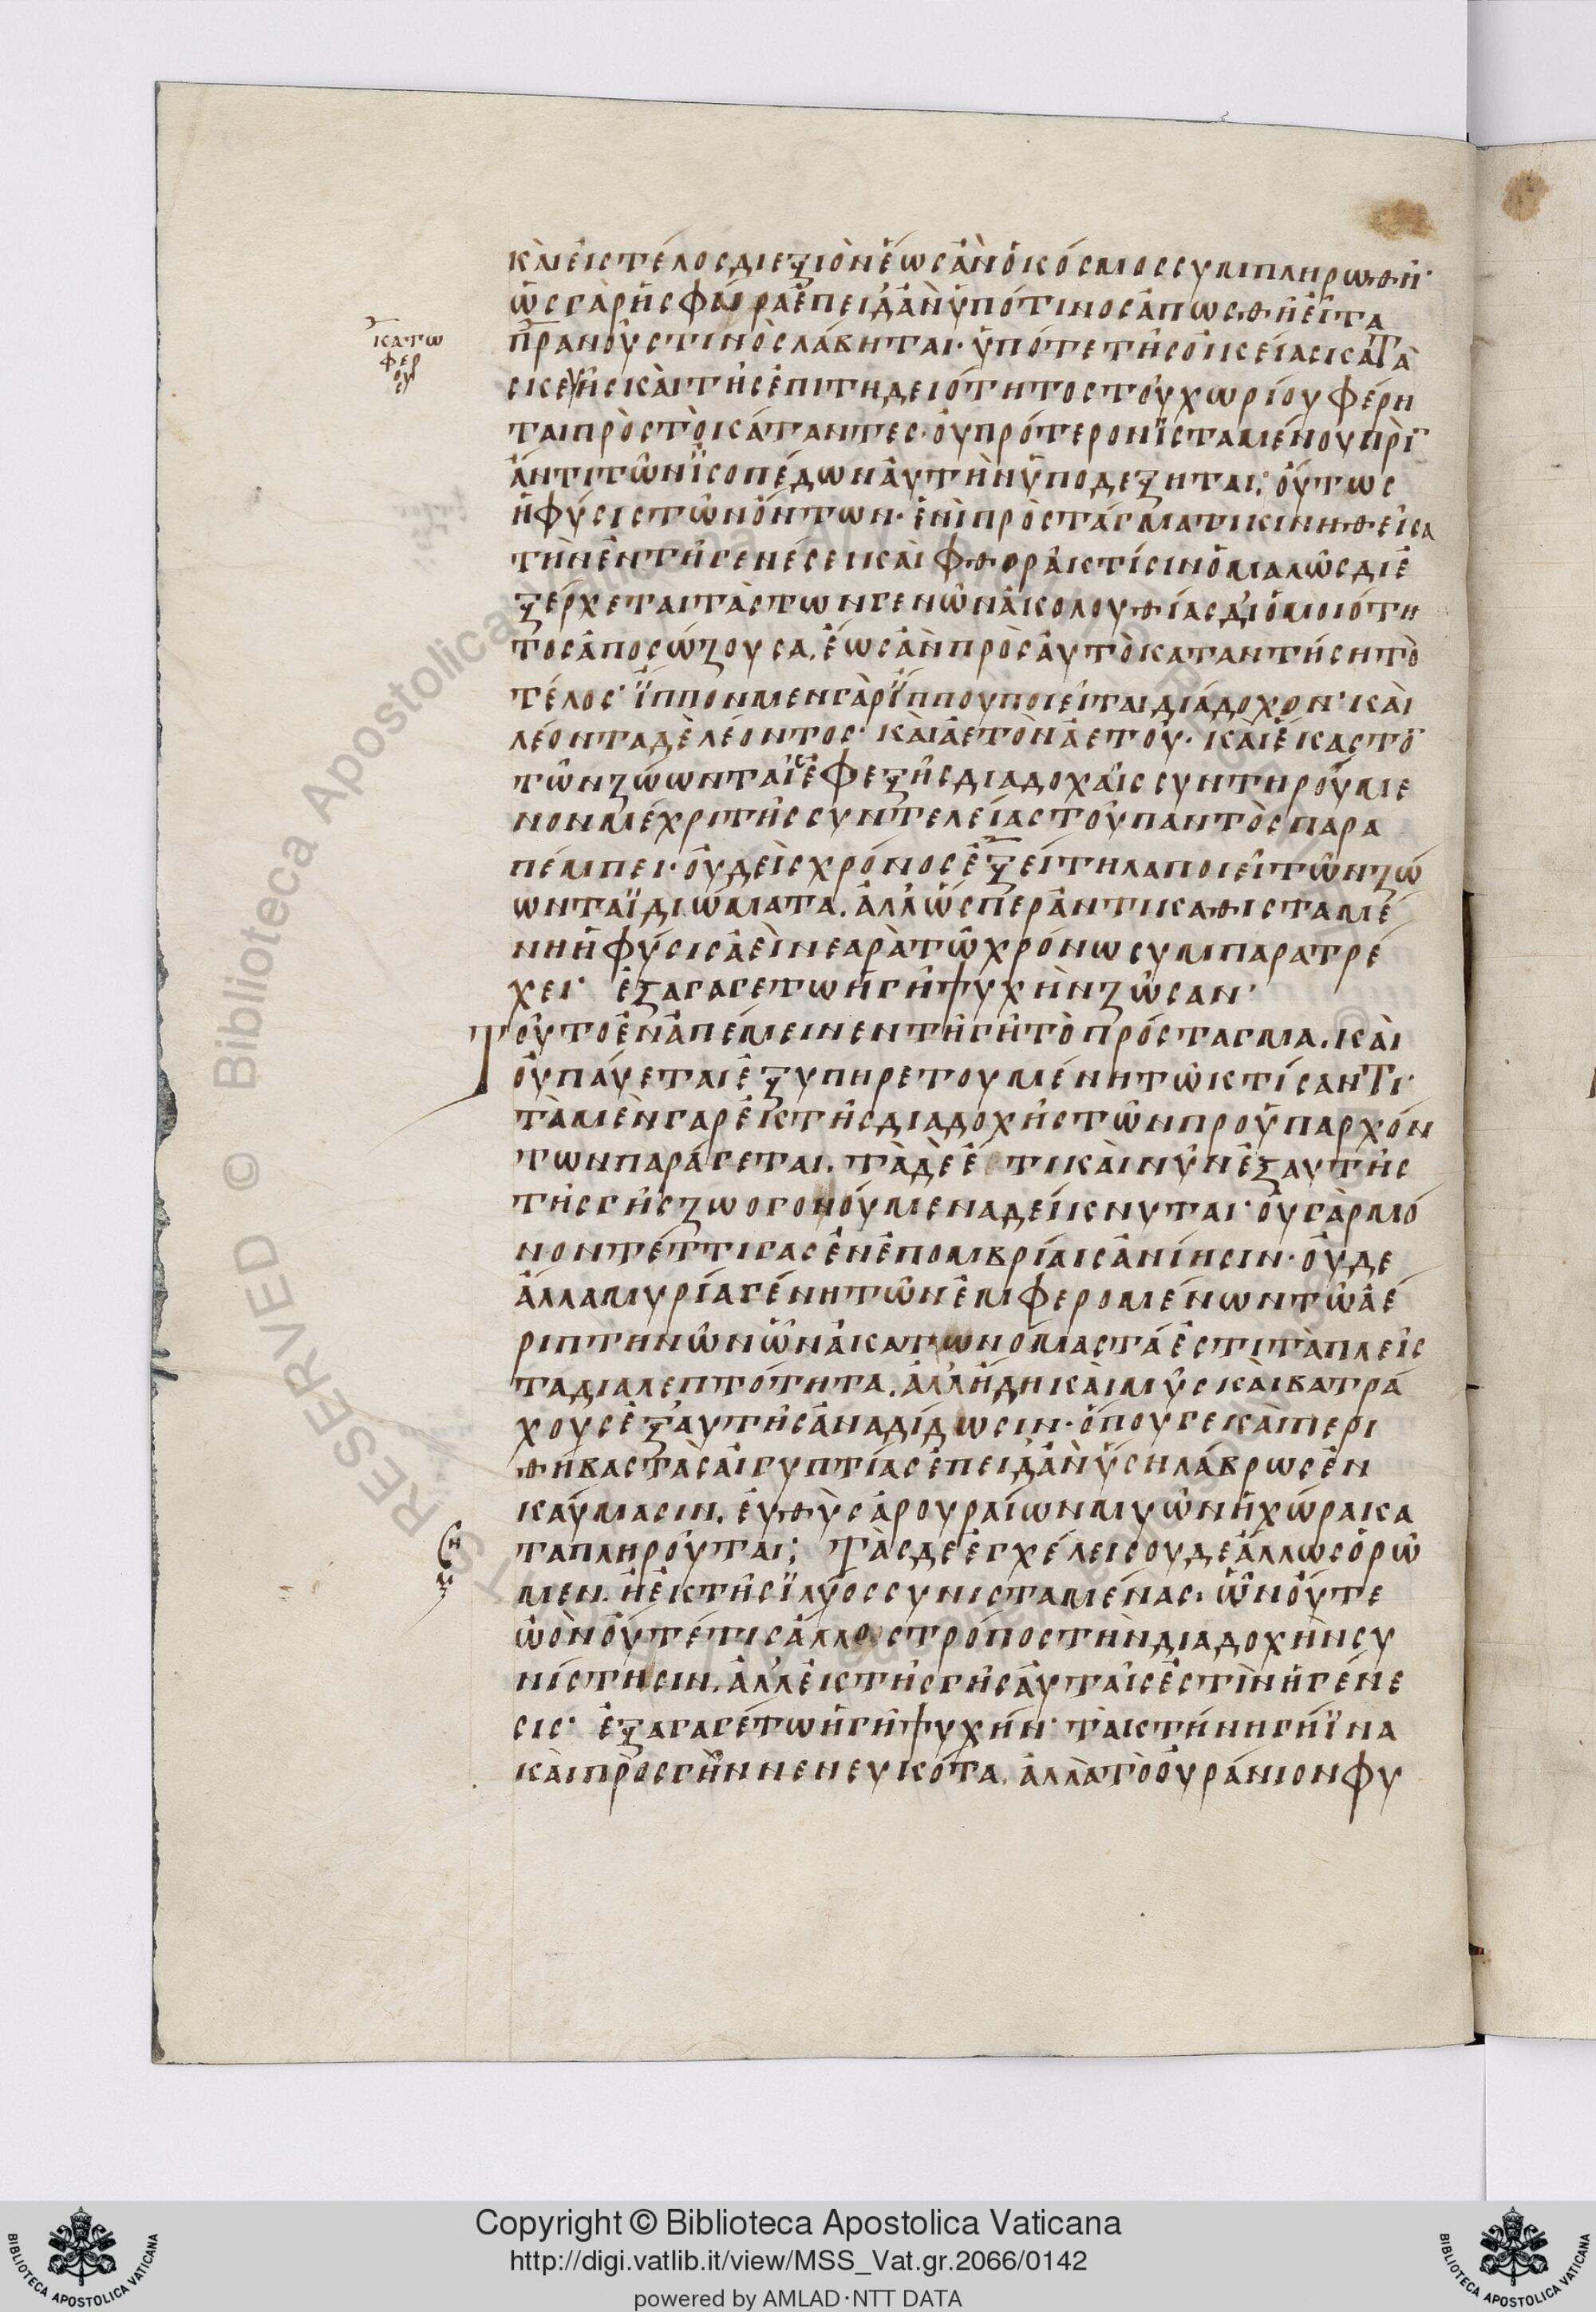 καὶ εἰς τέλος διεξιὸν ἕως ἂν ὁ κόσμος συμπληρωθῆ·
ὡς γὰρ ἡ σφαῖρα ἐπειδ' ἂν ὑπό τινος ἀπωσθῆ εἶτα
πρανοῦς τινὸς λάβηται· ὑπό τε τῆς οἰκείας κατα
κατω
φερ
ους
σκευῆς καὶ τῆς ἐπιτηδειότητος τοῦ χωρίου φέρη
ται πρὸς τὸ κάταντες· οὐ πρότερον ἱσταμένου πρὶν
ἄν τι τῶν ἰσοπέδων αὐτὴν ὑποδέξηται; οὕτως
ἡ φύσις τῶν ὄντων· ἑνὶ προστάγματι κινηθεῖσα
τὴν ἐν τῆ γενέσει καὶ φθορᾶ κτίσιν ὁμαλῶς διε
ξέρχεται τὰς τῶν γενῶν ἀκολουθίας δι' ὁμοιότη
τος ἀποσώζουσα, ἕως ἂν πρὸς αὐτὸ καταντήση τὸ
τέλος· ἵππον μεν γὰρ ἵππου ποιεῖται διάδοχον· καὶ
λέοντα δὲ λέοντος· καὶ ἀετὸν ἀετοῦ· καὶ ἕκαστον
τῶν ζώων ταῖς ἐφεξῆς διαδοχαῖς συντηρούμε
νον μέχρι τῆς συντελείας τοῦ παντὸς παρα
πέμπει· οὐδεὶς χρόνος ἐξείτηλα ποιεῖ τῶν ζώ
ων τα ἰδιώματα. ἀλλ' ὥσπερ ἀντικαθισταμέ
νη ἡ φύσις ἀεὶ νεαρὰ τῶ χρόνω συμπαρατρέ
χει· ἐξαγαγέτω ἡ γῆ ψυχὴν ζῶσαν·
τοῦτο ἐναπέμεινεν τῆ γῆ τὸ πρόσταγμα. καὶ
οὐ παύεται ἐξυπηρετουμένη τῶ κτίσαντι·
τὰ μὲν γαρ ἐκ τῆς διαδοχῆς τῶν προϋπαρχόν
των παράγεται. τὰ δὲ ἔτι καὶ νῦν ἐξ αυτῆς
τῆς γῆς ζωογονούμενα δείκνυται· οὐ γὰρ μό
νον τέττιγας ἐν ἐπομβρίαις ἀνίησιν· οὐδε
ἄλλα μυρία γένη τῶν ἐμφερομένων τῶ ἀέ
ρι πτηνῶν ὧν ἀκατωνόμαστά ἐστι τὰ πλεῖς
τα δια λεπτότητα. ἀλλ' ἤδη καὶ μῦς καὶ βατρά
χους ἐξ αυτῆς ἀναδίδωσιν· ὅπου γε κἀπι περι
θήβας τὰς αἰγυπτίας ἐπειδ' ἂν ὕση λάβρως ἐν
καύμασιν. εὐθὺς ἀρουραίων μυῶν ἡ χώρα κα
ταπληροῦται; Τὰς δε ἐγχέλεις ουδε ἄλλως ὁρῶ
μεν. ἢ ἐκ τῆς ἰλύος συνισταμένας. ὧν οὔτε
ὠὸν οὔτέ τις ἄλλος τρόπος τὴν διαδοχὴν συ
νίστησιν. ἀλλ' ἐκ τῆς γῆς αὐταῖς ἐστὶν ἡ γένε
σις· ἐξαγαγέτω ἡ γῆ ψυχήν· τὰ κτήνη γήϊνα
καὶ πρὸς γῆν νενευκότα. ἀλλὰ τὸ οὐράνιον φυ
Copyright © Biblioteca Apostolica Vaticana
http://digi.vatlib.it/view/MSS_Vat.gr.2066/0142
powered by AMLAD·NTT DATA
BIBLIOTECA APOSTOLICA VATICANA
BIBLIOTECA APOSTOLICA VATICANA